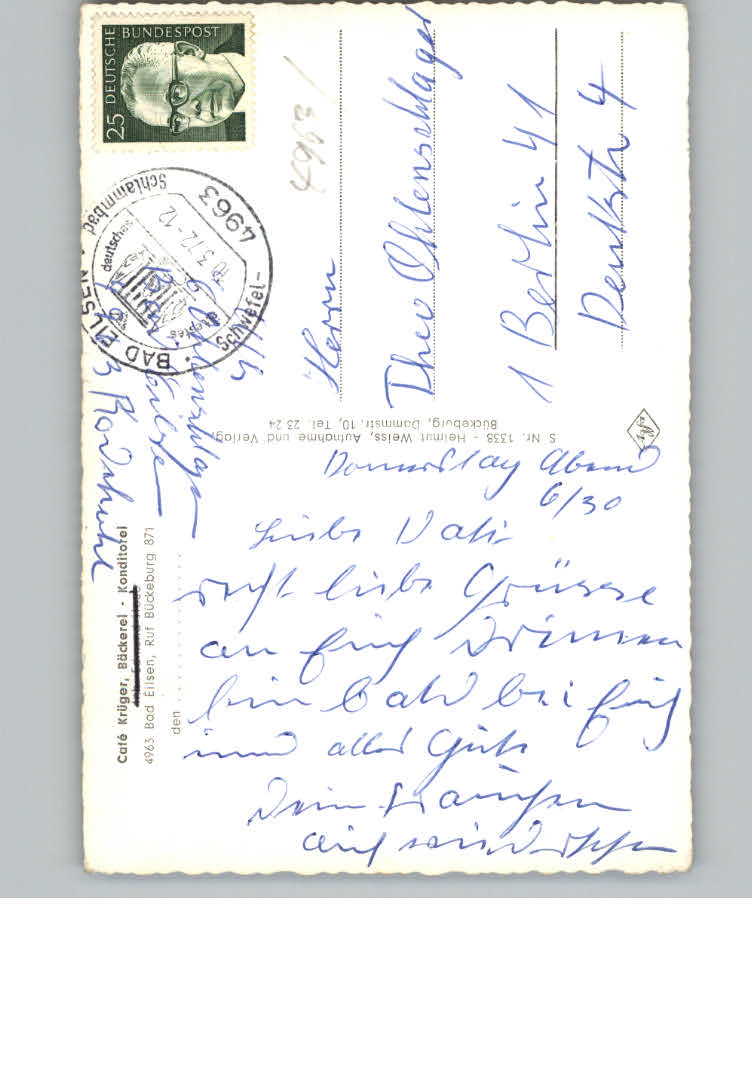 DEUTSCHE BUNDESPOST
25
4963
BAD EILSEN
Schlammbad
Schwefel-
deutsches
3.72-12
4963
Herrn
Theo Ohlenschlager
1 Berlin 41
Denkstr 4
Ohlenschlager
Bad Eilsen
S Nr. 1338 - Helmut Weiss, Aufnahme und Verlag,
Bückeburg, Dammstr. 10, Tel. 23 24
Café Krüger, Bäckerei - Konditorei
4963 Bad Eilsen, Ruf Bückeburg 871
den
Donnerstag Abend
6/30
Liebe Vati
recht liebe Grüsse
an Euch
bin bald bei Euch
und alles Gute
Dein
auf wiedersehen